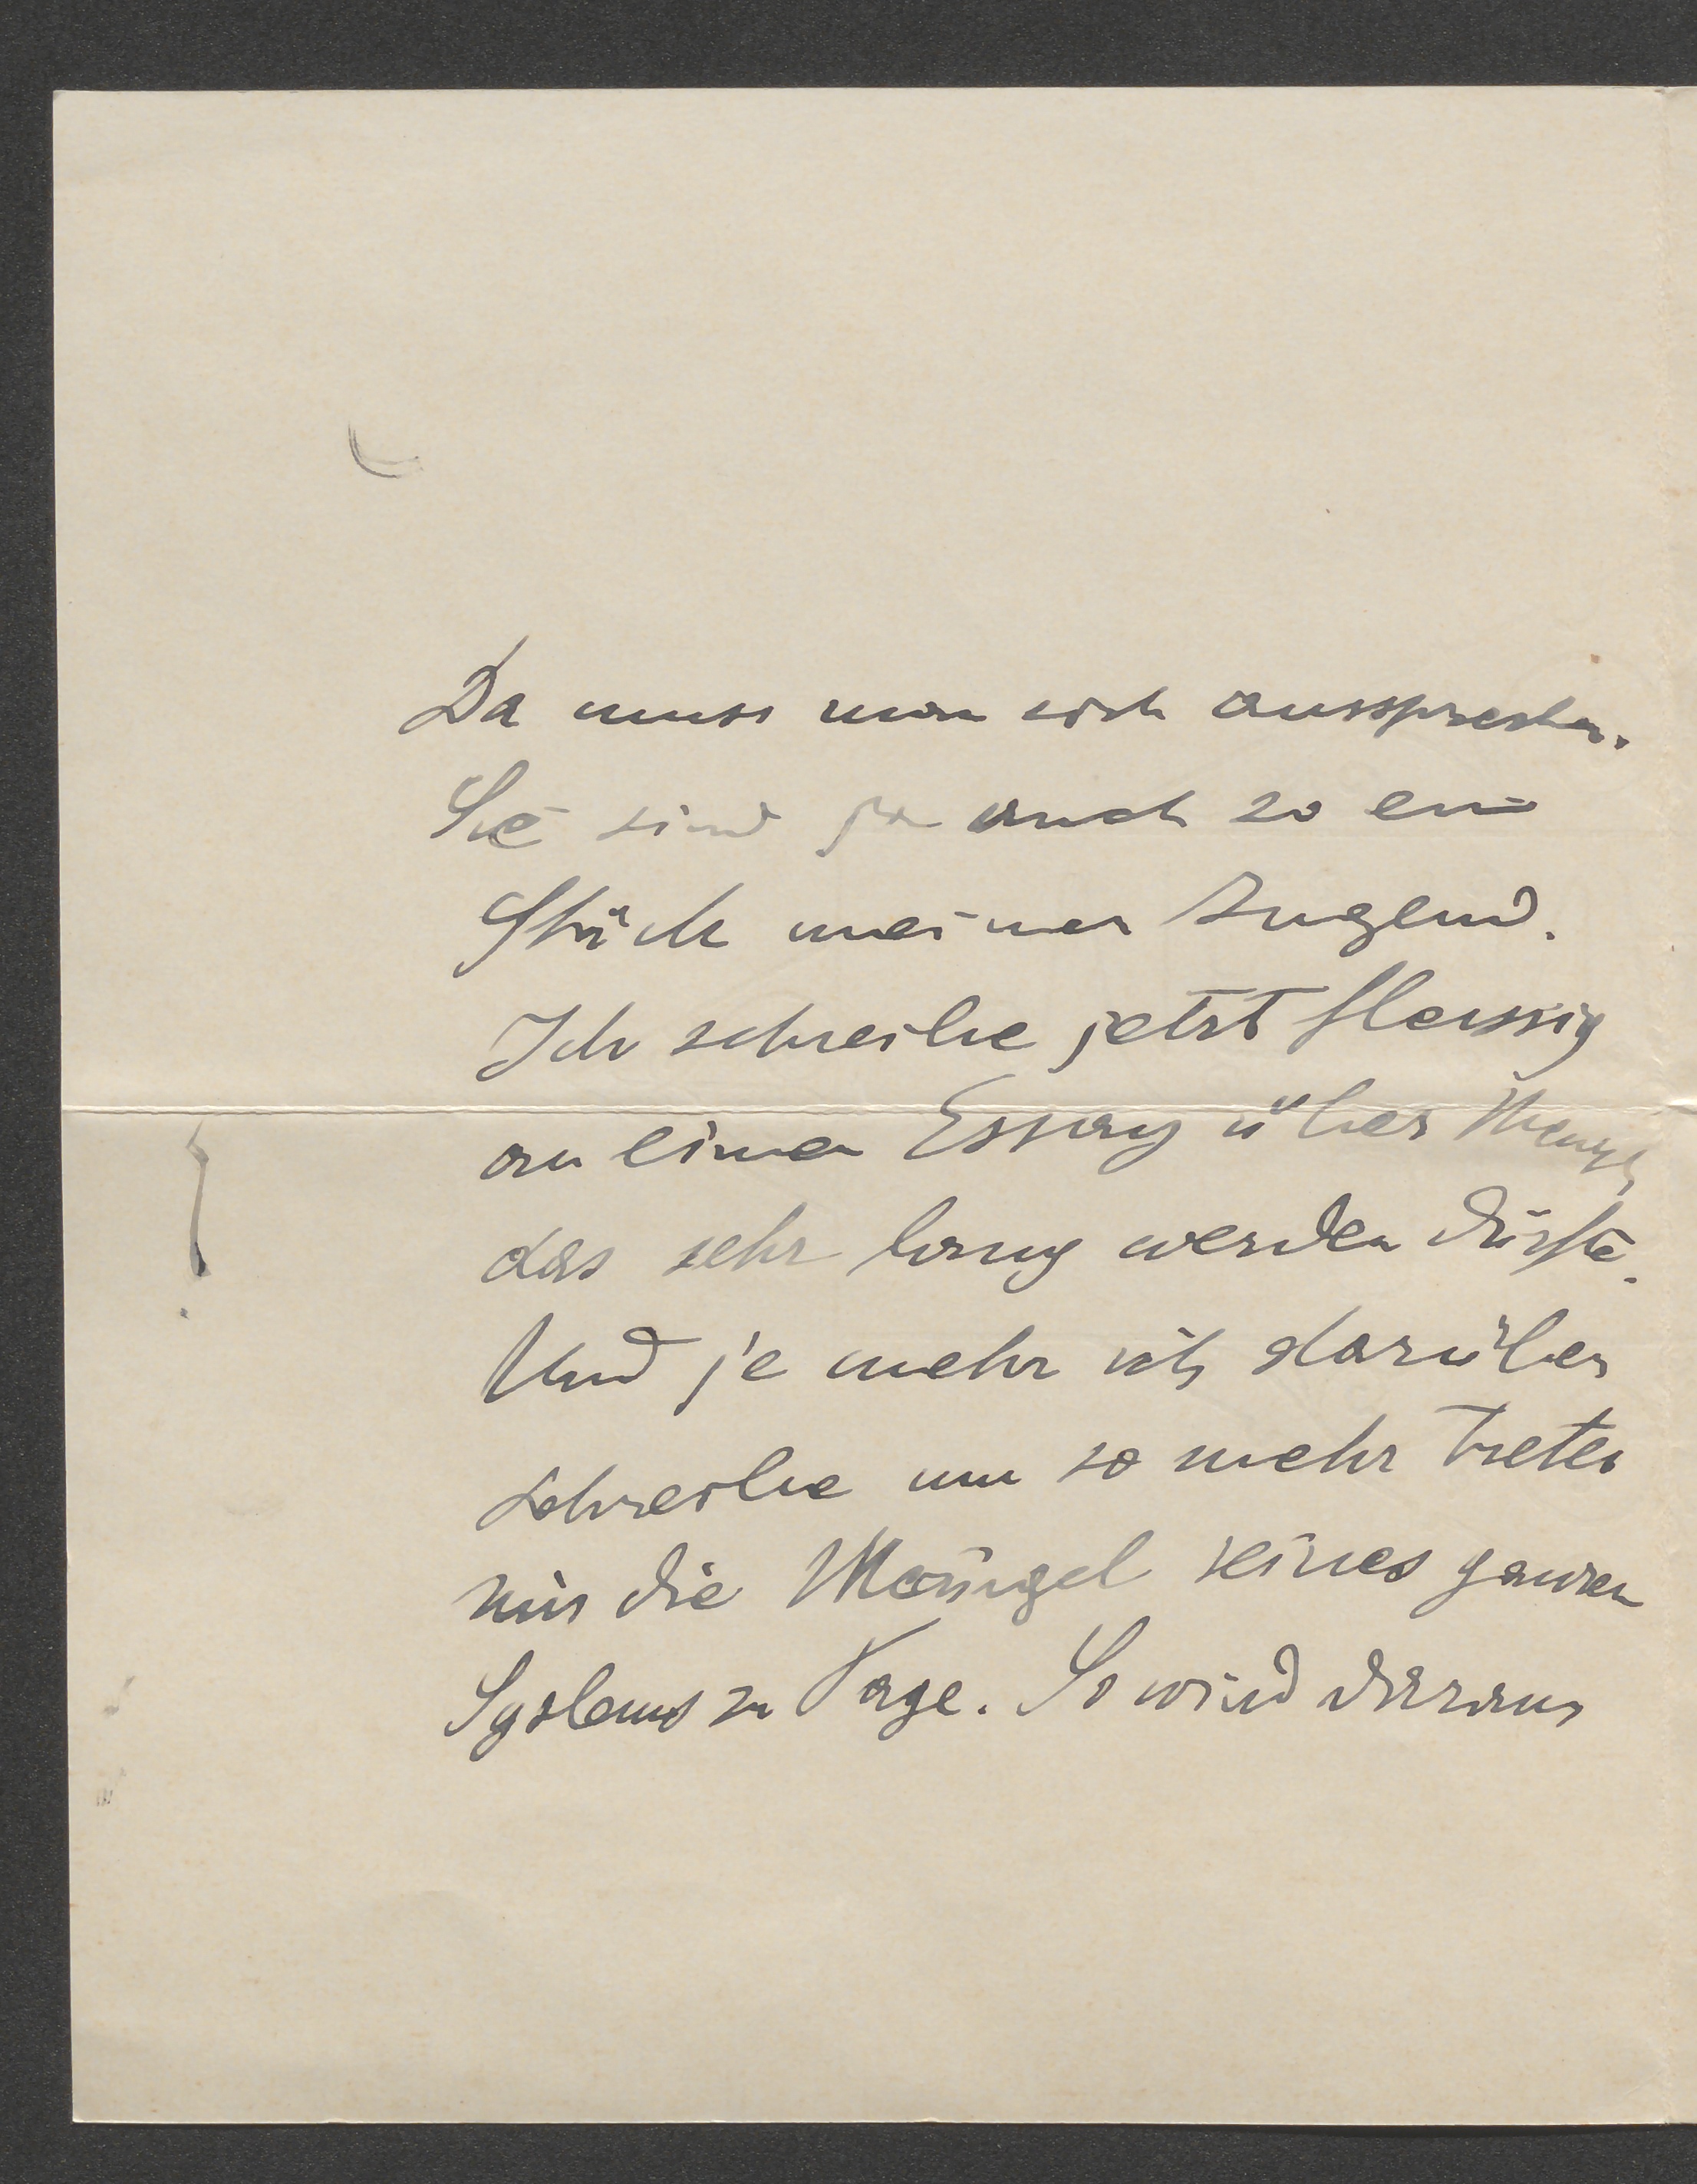 Da muss man sich aussprechen.
Sie sind ja auch so ein
Stück meiner Jugend.
Ich schreibe jetzt fleissig
an einen Essay über Menger,
das sehr lang werden dürfte.
Und je mehr ich darüber
schreibe um so mehr treten
mir die Mängel seines ganzen
Systems zu Tage. So wird daraus